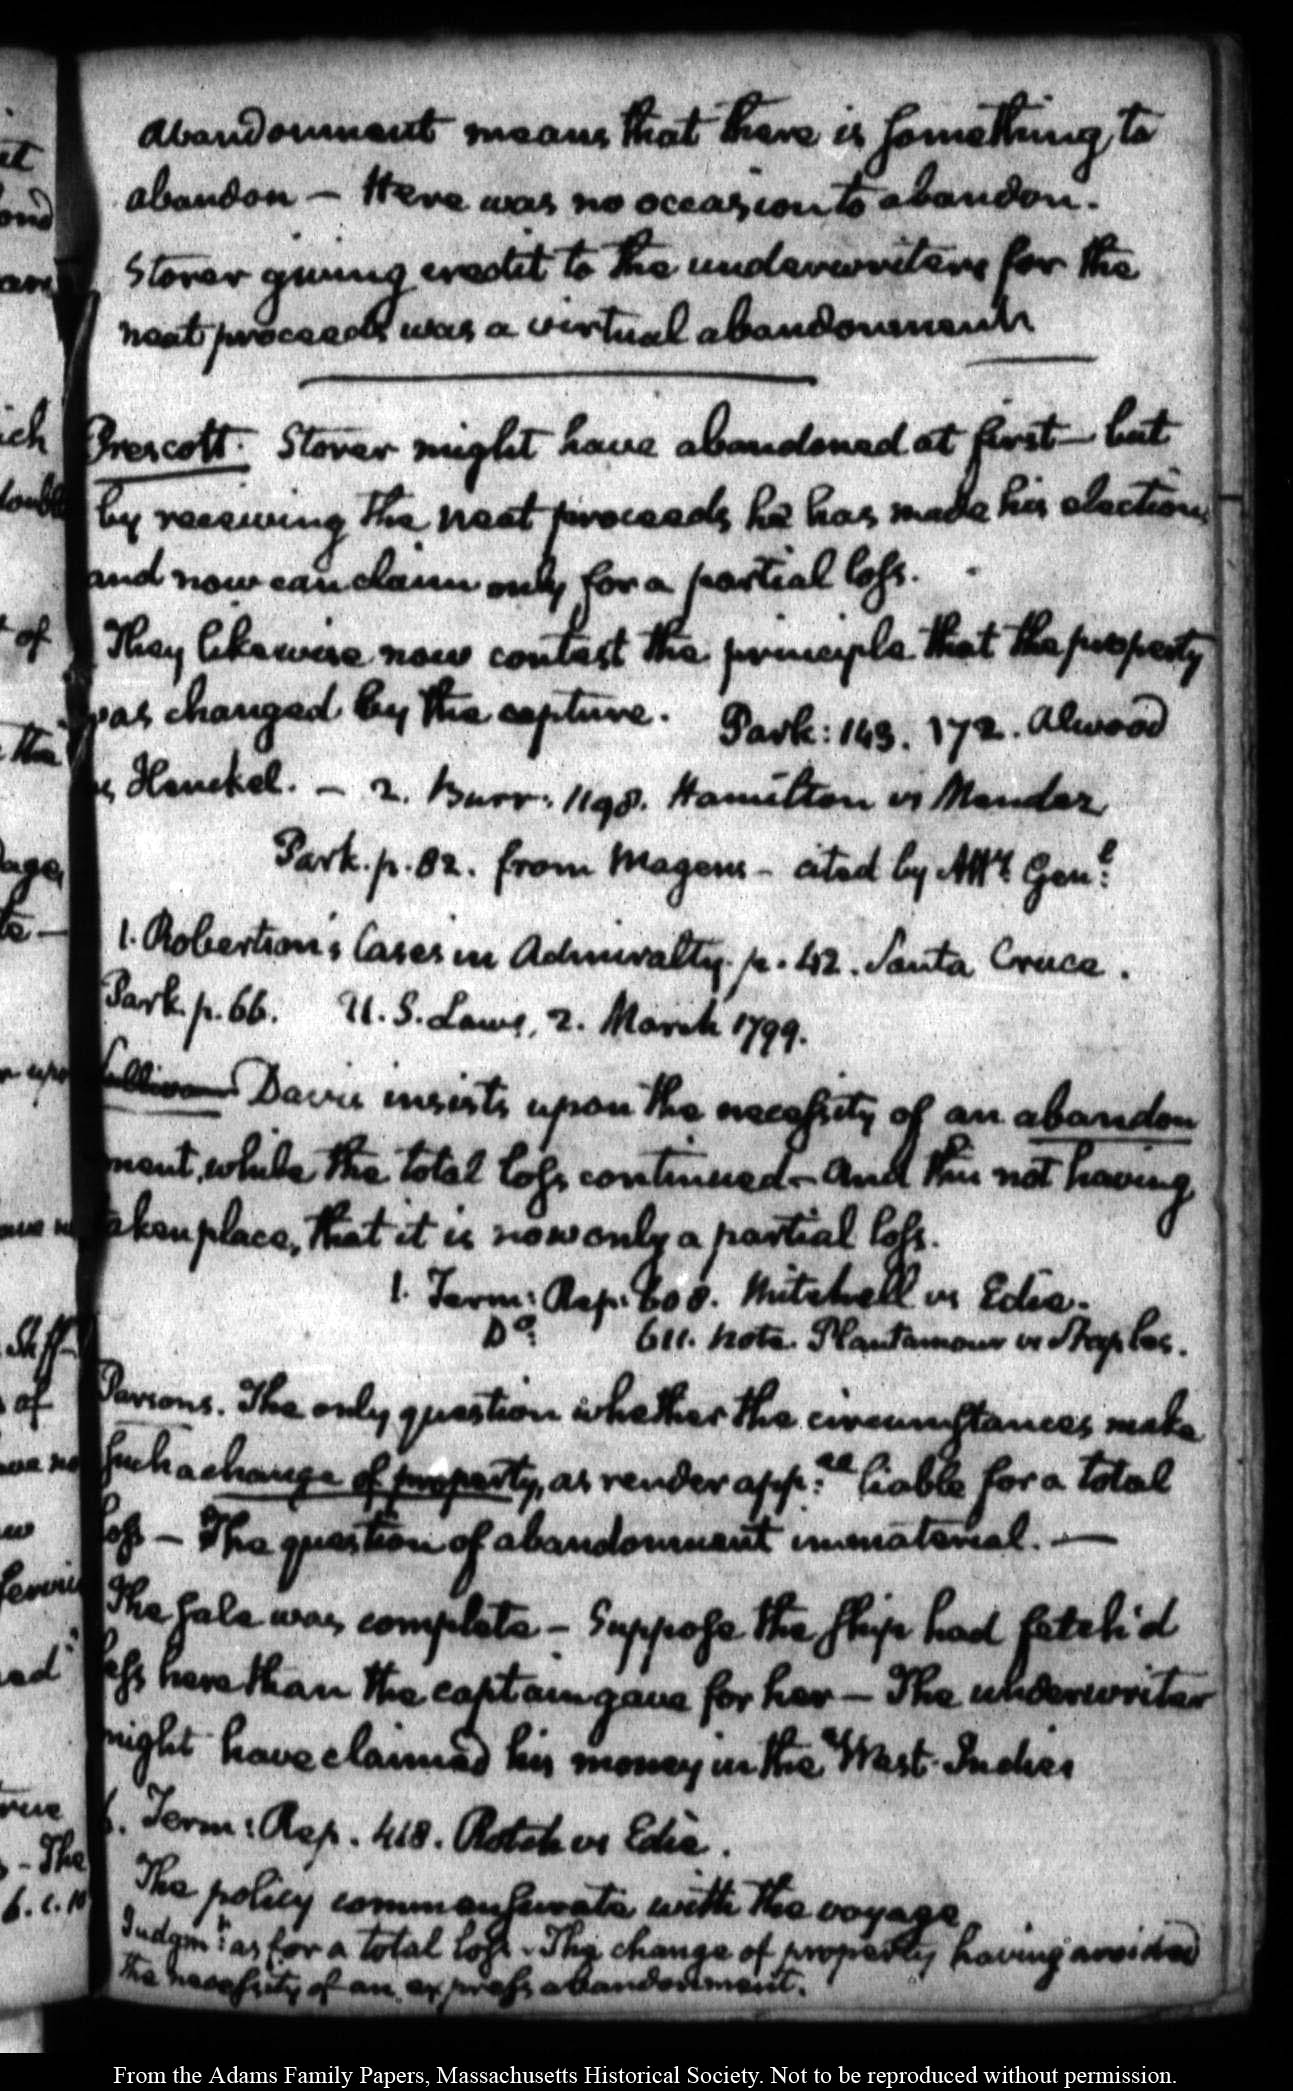 abandonment means that there is something to
abandon — Here was no occasion to abandon.
Storer giving credit to the underwriters for the
neat proceeds was a virtual abandonment
Prescott. Storer might have abandoned at first — but
by receiving the neat proceeds he has made his election
and now can claim only for a partial loss.
They likewise now contest the principle that the property
was changed by the capture. Park: 143. 172. Alwood
vs Henckel. — 2. Burr: 1198. Hamilton vs Mendez
Park. p. 82. from Magens — cited by Atty. Genl.
1. Robertson's Cases in Admiralty. p. 42. Santa Cruce.
Park. p. 66. U. S. Laws, 2. March 1799.
Sullivan Davis insists upon the necessity of an abandon
ment, while the total loss continued — and this not having
taken place, that it is now only a partial loss.
1. Term: Rep: 608. Mitchell vs Edie.
Do: 611. note. Plantamour vs Staples.
Parsons. The only question whether the circumstances make
such a change of property, as render app:ee liable for a total
loss — The question of abandonment immaterial. —
The sale was complete — Suppose the ship had fetch'd
less here than the captain gave for her — The underwriter
might have claimed his money in the West-Indies
6. Term: Rep. 418. Rotch vs Edie.
The policy commensurate with the voyage
Judgmt: as for a total loss. The change of property having avoided
the necessity of an express abandonment.
ich
of
the
of
true
The
From the Adams Family Papers, Massachusetts Historical Society. Not to be reproduced without permission.